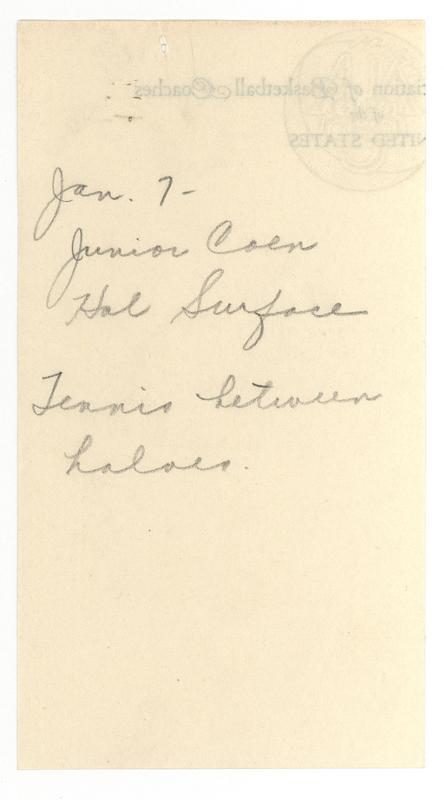 ciation of Basketball Coaches
of the
NITED STATES
Jan. 7-
Junior Coen
Hal Surface
Tennis between
halves.